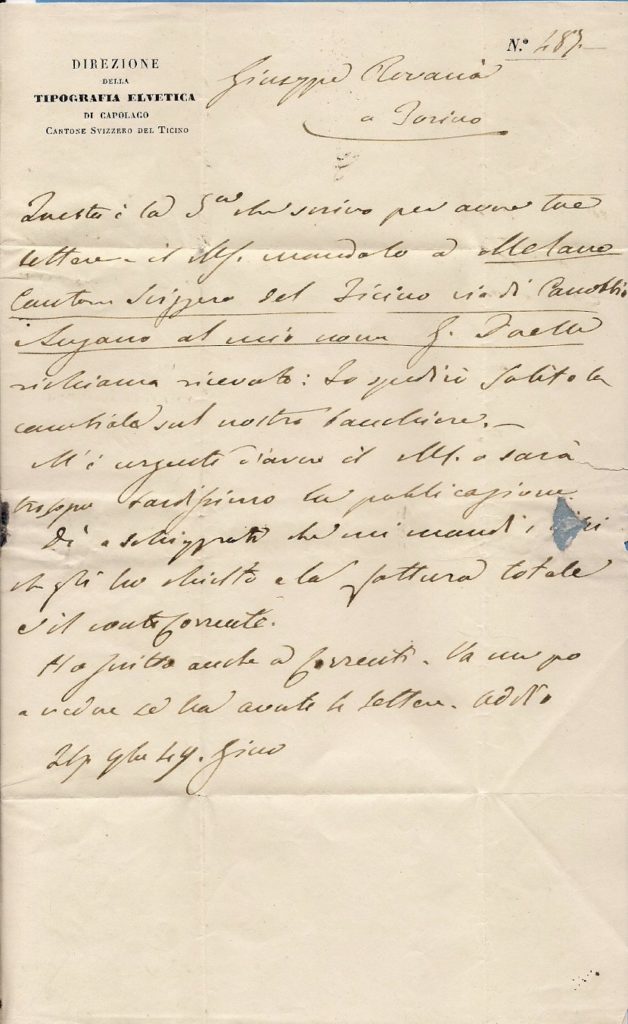 DIREZIONE
DELLA
TIPOGRAFIA ELVETICA
DI CAPOLAGO
CANTONE SVIZZERO DEL TICINO
N.º 487.
Giuseppe Rovani
a Torino
Questa è la 5ª che scrivo per avere tue
lettere – il Ms. mandalo a Melano
Cantone Svizzero del Ticino via di Canobbio
Lugano al mio nome G. Daelli
richiama ricevuta: Io spedirò subito la
cambiale sul nostro banchiere. –
M'è urgente d'avere il Ms. o sarà
troppo tardissimo la publicazione
Dì a Schiepatti che mi mandi i
che gli ho chiesto e la fattura totale
e il conto corrente.
Ho scritto anche a Correnti. Va un po
a vedere se ha avute le lettere. Addio
9bre 49. Gino